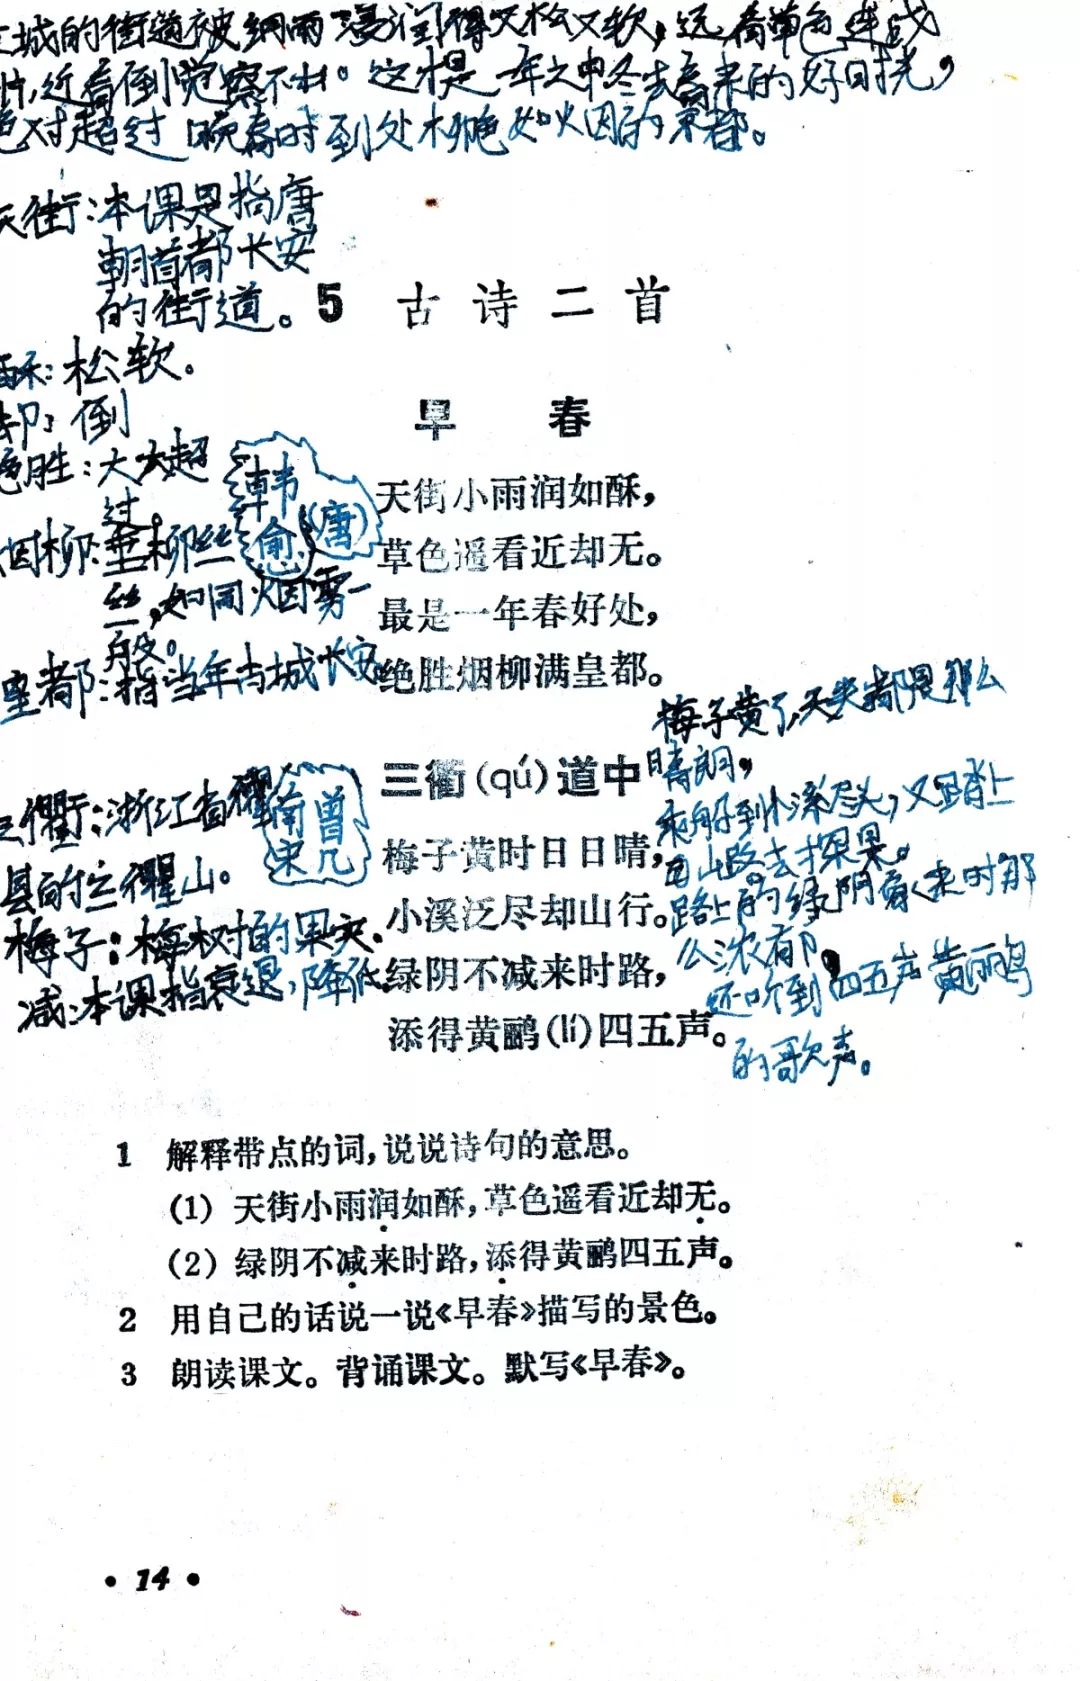 城的街道被细雨浸润得又松又软，远看草色连成
片，近看倒觉察不出。这才是一年之中冬去春来的好时光，
绝对超过晚春时到处柳色如烟的京都。
天街：本课是指唐
朝首都长安
的街道。
5 古诗二首
酥：松软。
却：倒
早 春
绝胜：大大超
过。
韩愈（唐）
天街小雨润如酥，
草色遥看近却无。
最是一年春好处，
绝胜烟柳满皇都。
烟柳：垂柳丝
丝，如同烟雾一
般。
皇都：指当年古城长安
三衢(qú)道中
南宋 曾几
梅子黄时日日晴，
小溪泛尽却山行。
绿阴不减来时路，
添得黄鹂(lí)四五声。
三衢：浙江省衢
县的三衢山。
梅子：梅树的果实.
减：本课指衰退，降低.
梅子黄了，天天都是那么
晴朗，
乘船到小溪尽头，又踏上
山路去采果。
路上的绿阴像来时那
么浓郁，
还听到四五声黄鹂鸟
的歌声。
1 解释带点的词，说说诗句的意思。
(1) 天街小雨润如酥，草色遥看近却无。
(2) 绿阴不减来时路，添得黄鹂四五声。
2 用自己的话说一说《早春》描写的景色。
3 朗读课文。背诵课文。默写《早春》。
• 14 •